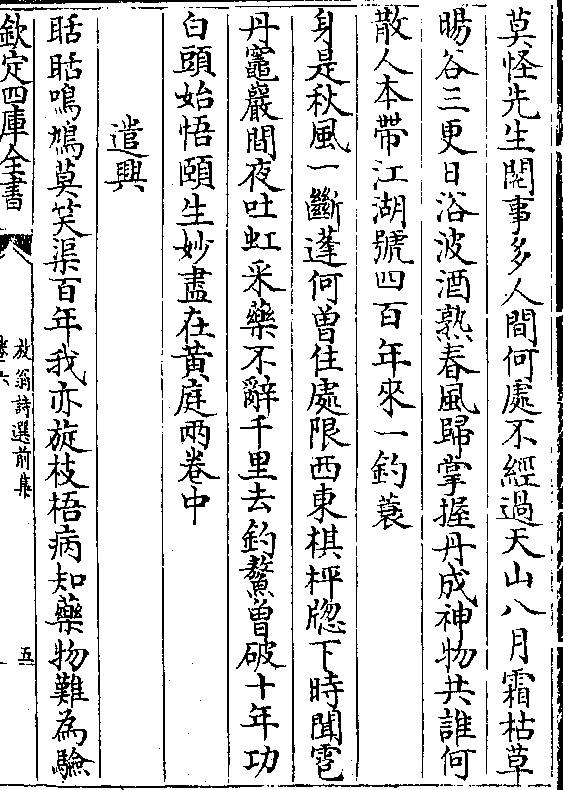 莫怪先生閱事多人間何處不經過天山八月霜枯草
暘谷三更日浴波酒熟春風歸掌握丹成神物共誰何
散人本帶江湖號四百年來一釣蓑
身是秋風一斷蓬何曾住處限西東棋枰牎下時聞雹
丹竈巖間夜吐虹采藥不辭千里去釣鰲曾破十年功
白頭始悟頤生妙盡在黃庭兩卷中
遣興
聒聒鳴鳩莫笑渠百年我亦旋枝梧病知藥物難為驗
欽定四庫全書
放翁詩選前集
卷六
五